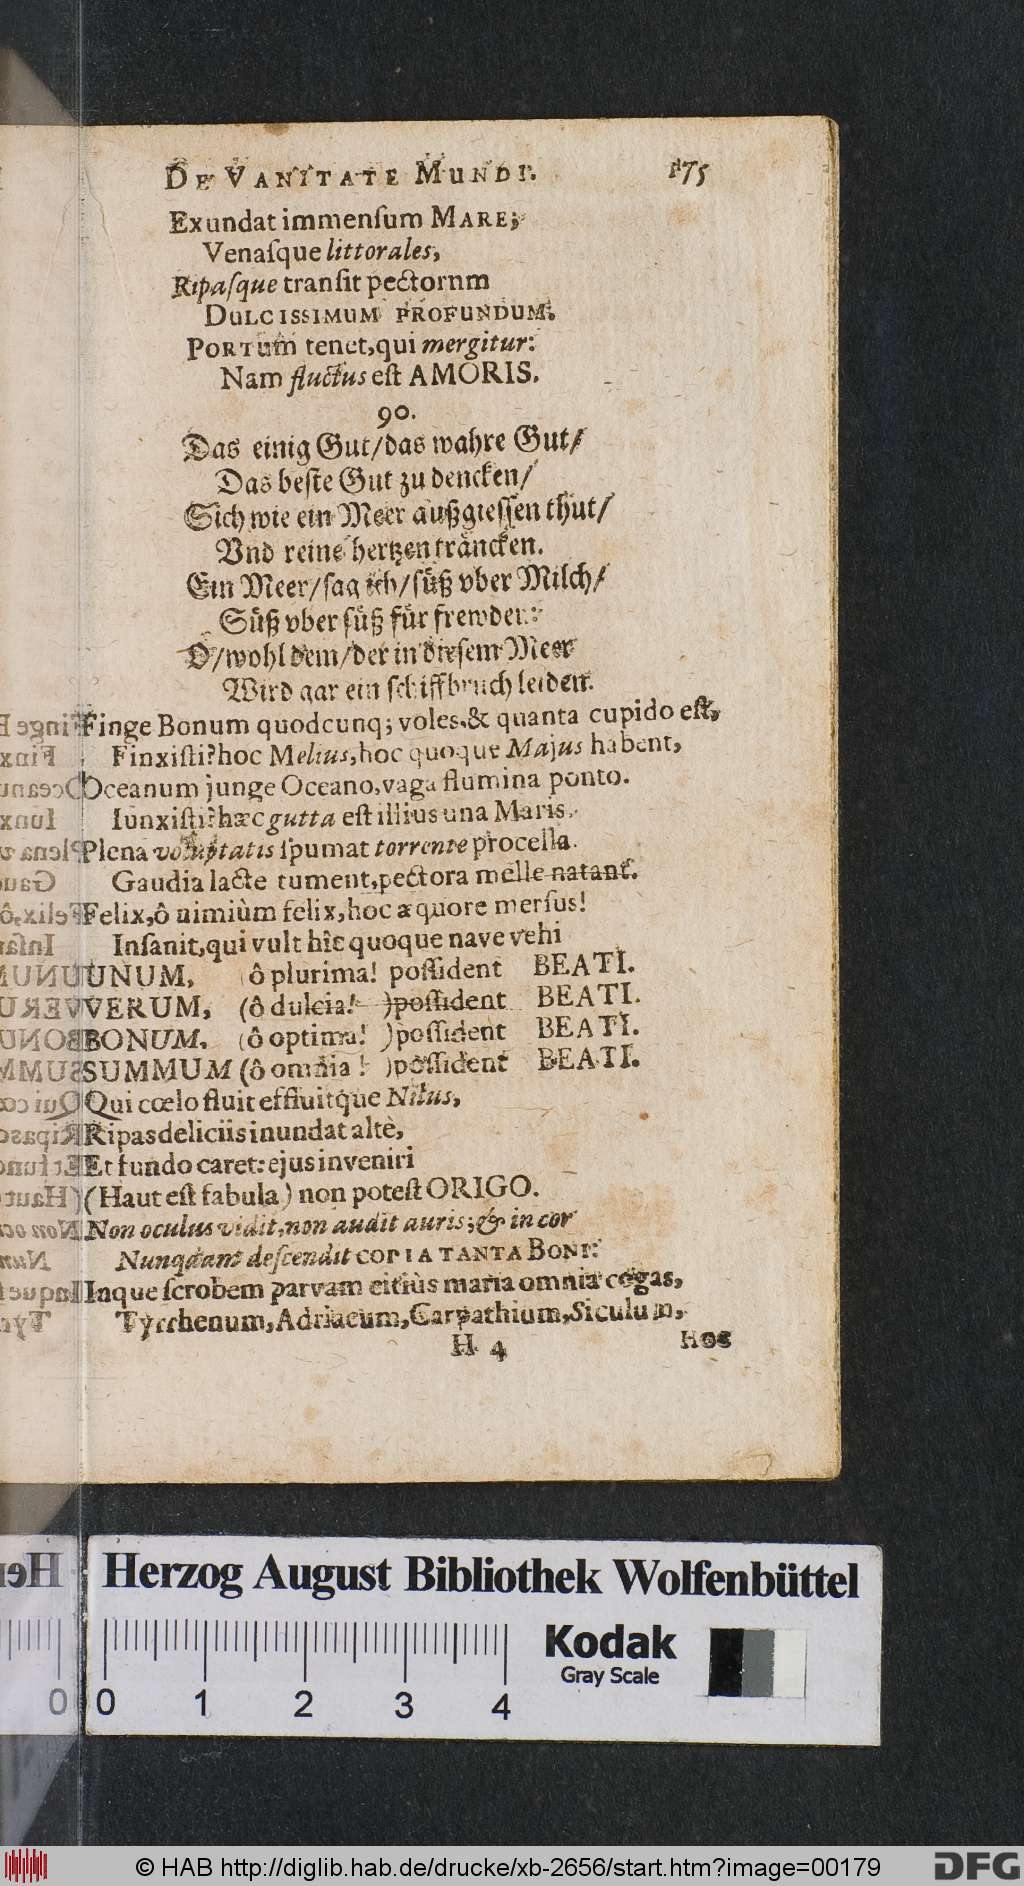 DE VANITATE MUNDI. 175
Exundat immenſum MARE;
Venaſque littorales,
Ripaſque tranſit pectornm
DULCISSIMUM PROFUNDUM.
PORTum tenet, qui mergitur:
Nam fluctus eſt AMORIS.
90.
Das einig Gut/das wahre Gut/
Das beſte Gut zu dencken/
Sich wie ein Meer außgieſſen thut/
Vnd reine hertzen träncken.
Ein Meer/ſag ich/ſüß vber Milch/
Süß vber ſüß für frewden:
O/wohl dem/der in dieſem Meer
Wird gar ein ſchiffbruch leiden.
Finge Bonum quodcunq; voles, & quanta cupido eſt,
Finxiſti? hoc Melius, hoc quoque Majus habent,
Oceanum junge Oceano, vaga flumina ponto.
Iunxiſti? hæc gutta eſt illius una Maris.
Plena voluptatis ſpumat torrente procella.
Gaudia lacte tument, pectora melle natant.
Felix, ô nimiùm felix, hoc æquore merſus!
Inſanit, qui vult hîc quoque nave vehi
UNUM, (ô plurima! poſſident BEATI.
VERUM, (ô dulcia! )poſſident BEATI.
BONUM. (ô optima! )poſſident BEATI.
SUMMUM (ô omnia! )poſſident BEATI.
Qui cœlo fluit effluitque Nilus,
Ripas deliciis inundat altè,
Et fundo caret: ejus inveniri
(Haut eſt fabula) non poteſt ORIGO.
Non oculus vidit, non audit auris; & in cor
Nunquam deſcendit COPIA TANTA BONI:
Inque ſcrobem parvam citiùs maria omnia cogas,
Tyrrhenum, Adriacum, Carpathium, Siculum,
H 4 Hos
Herzog August Bibliothek Wolfenbüttel
Kodak
Gray Scale
0 1 2 3 4
© HAB http://diglib.hab.de/drucke/xb-2656/start.htm?image=00179
DFG